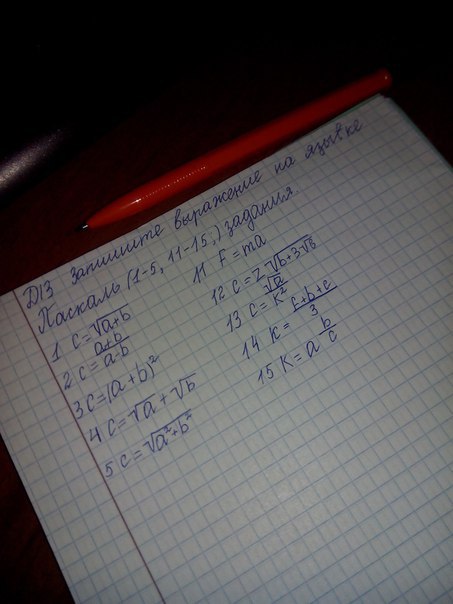 D13 Запишите выражение на языке
Паскаль (1-5, 11-15;) задания.
1 c = √a+b
2 c = a+b / a-b
3 c = (a+b)²
4 c = √a + √b
5 c = √a²+b²
11 F = ma
12 c = 2√b+3√8
13 c = √a / k²
14 k = c+b+c / 3
15 K = a b/c